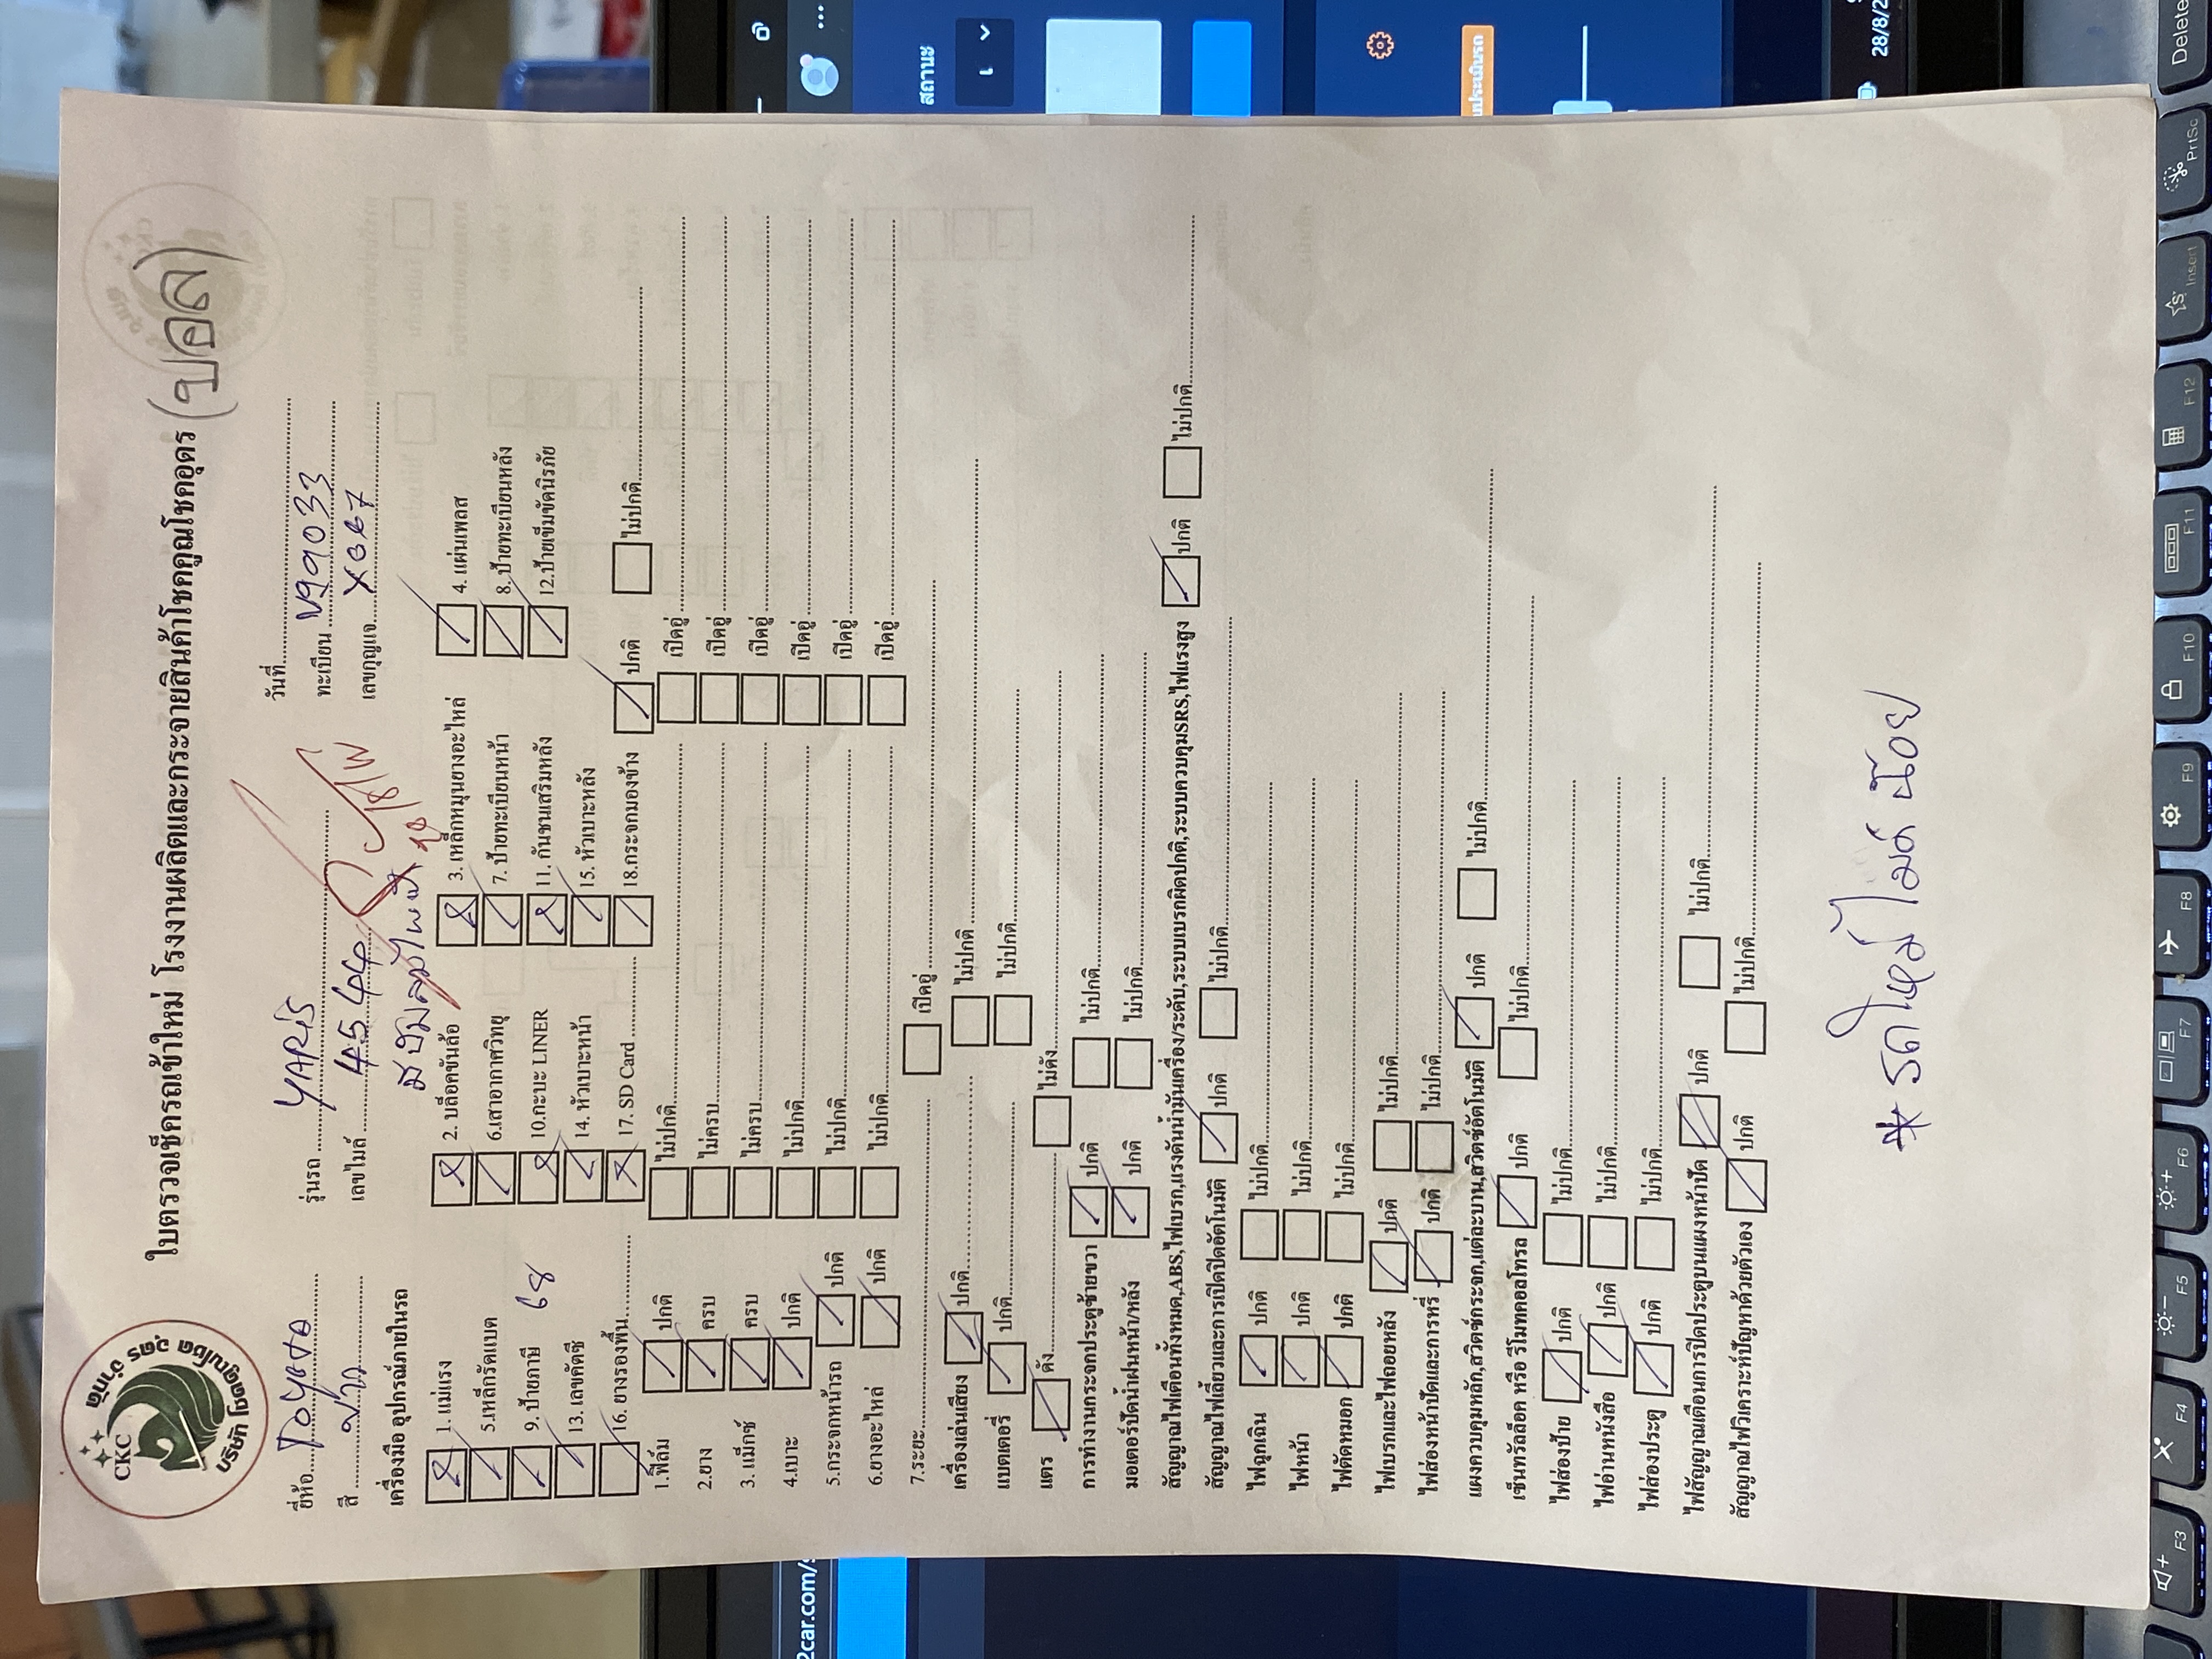 CKC
บริษัท โชคคูณโชค อุดร จำกัด
ใบตรวจเช็ครถเข้าใหม่ โรงงานผลิตและกระจายสินค้าโชคคูณโชคอุดร (ปอล)
วันที่
ยี่ห้อ Toyota รุ่นรถ YARIS ทะเบียน ขจ9033
สี ขาว เลขไมล์ 45544 เลขกุญแจ
เครื่องมือ อุปกรณ์ภายในรถ
1. แม่แรง 2. บล็อคขันล้อ 3. เหล็กหมุนยางอะไหล่ 4. แผ่นเพลส
5.เหล็กรัดแบต 6.เสาอากาศวิทยุ 7. ป้ายทะเบียนหน้า 8. ป้ายทะเบียนหลัง
9. ป้ายภาษี 68 10.กะบะ LINER 11. กันชนเสริมหลัง 12.ป้ายเข็มขัดนิรภัย
13. เลขคัตซี 14. หัวเบาะหน้า 15. หัวเบาะหลัง
16. ยางรองพื้น 17. SD Card 18.กระจกมองข้าง ปกติ ไม่ปกติ
1.ฟิล์ม ปกติ ไม่ปกติ เปิดอู่
2.ยาง ครบ ไม่ครบ เปิดอู่
3. แม็กซ์ ครบ ไม่ครบ เปิดอู่
4.เบาะ ปกติ ไม่ปกติ เปิดอู่
5.กระจกหน้ารถ ปกติ ไม่ปกติ เปิดอู่
6.ยางอะไหล่ ปกติ ไม่ปกติ เปิดอู่
7.ระยะ เปิดอู่
เครื่องเล่นเสียง ปกติ ไม่ปกติ
แบตเตอรี่ ปกติ ไม่ปกติ
แตร ดัง ไม่ดัง
การทำงานกระจกประตูซ้ายขวา ปกติ ไม่ปกติ
มอเตอร์ปัดน้ำฝนหน้า/หลัง ปกติ ไม่ปกติ
สัญญาณไฟเตือนทั้งหมด,ABS,ไฟเบรก,แรงดันน้ำมันเครื่อง/ระดับ,ระบบเบรกผิดปกติ,ระบบควบคุมSRS,ไฟแรงสูง ปกติ ไม่ปกติ
สัญญาณไฟเลี้ยวและการเปิดปิดอัตโนมัติ ปกติ ไม่ปกติ
ไฟฉุกเฉิน ปกติ ไม่ปกติ
ไฟหน้า ปกติ ไม่ปกติ
ไฟตัดหมอก ปกติ ไม่ปกติ
ไฟเบรกและไฟถอยหลัง ปกติ ไม่ปกติ
ไฟส่องหน้าปัดและการหรี่ ปกติ ไม่ปกติ
แผงควบคุมหลัก,สวิตช์กระจก,แต่ละบาน,สวิตช์อัตโนมัติ ปกติ ไม่ปกติ
เซ็นทรัลล็อค หรือ รีโมทคอลโทรล ปกติ ไม่ปกติ
ไฟส่องป้าย ปกติ ไม่ปกติ
ไฟอ่านหนังสือ ปกติ ไม่ปกติ
ไฟส่องประตู ปกติ ไม่ปกติ
ไฟสัญญาณเตือนการปิดประตูบนแผงหน้าปัด ปกติ ไม่ปกติ
สัญญาณไฟวิเคราะห์ปัญหาด้วยตัวเอง ปกติ ไม่ปกติ
* รถใหม่ ไมล์ น้อย
สถานะ
2car.com/
28/8/2
Delete
PrtSc
Insert
F12
F11
F10
F9
F8
F7
F6
F5
F4
F3